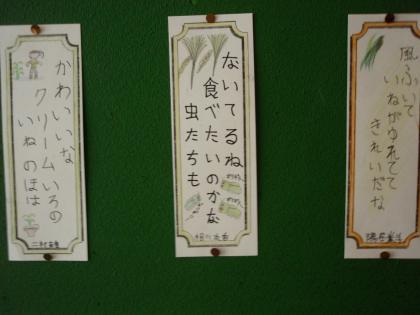 風ふいて
いねがゆれてて
きれいだな
ないてるね
食べたいのかな
虫たちも
かわいいな
クリームいろの
いねのほは